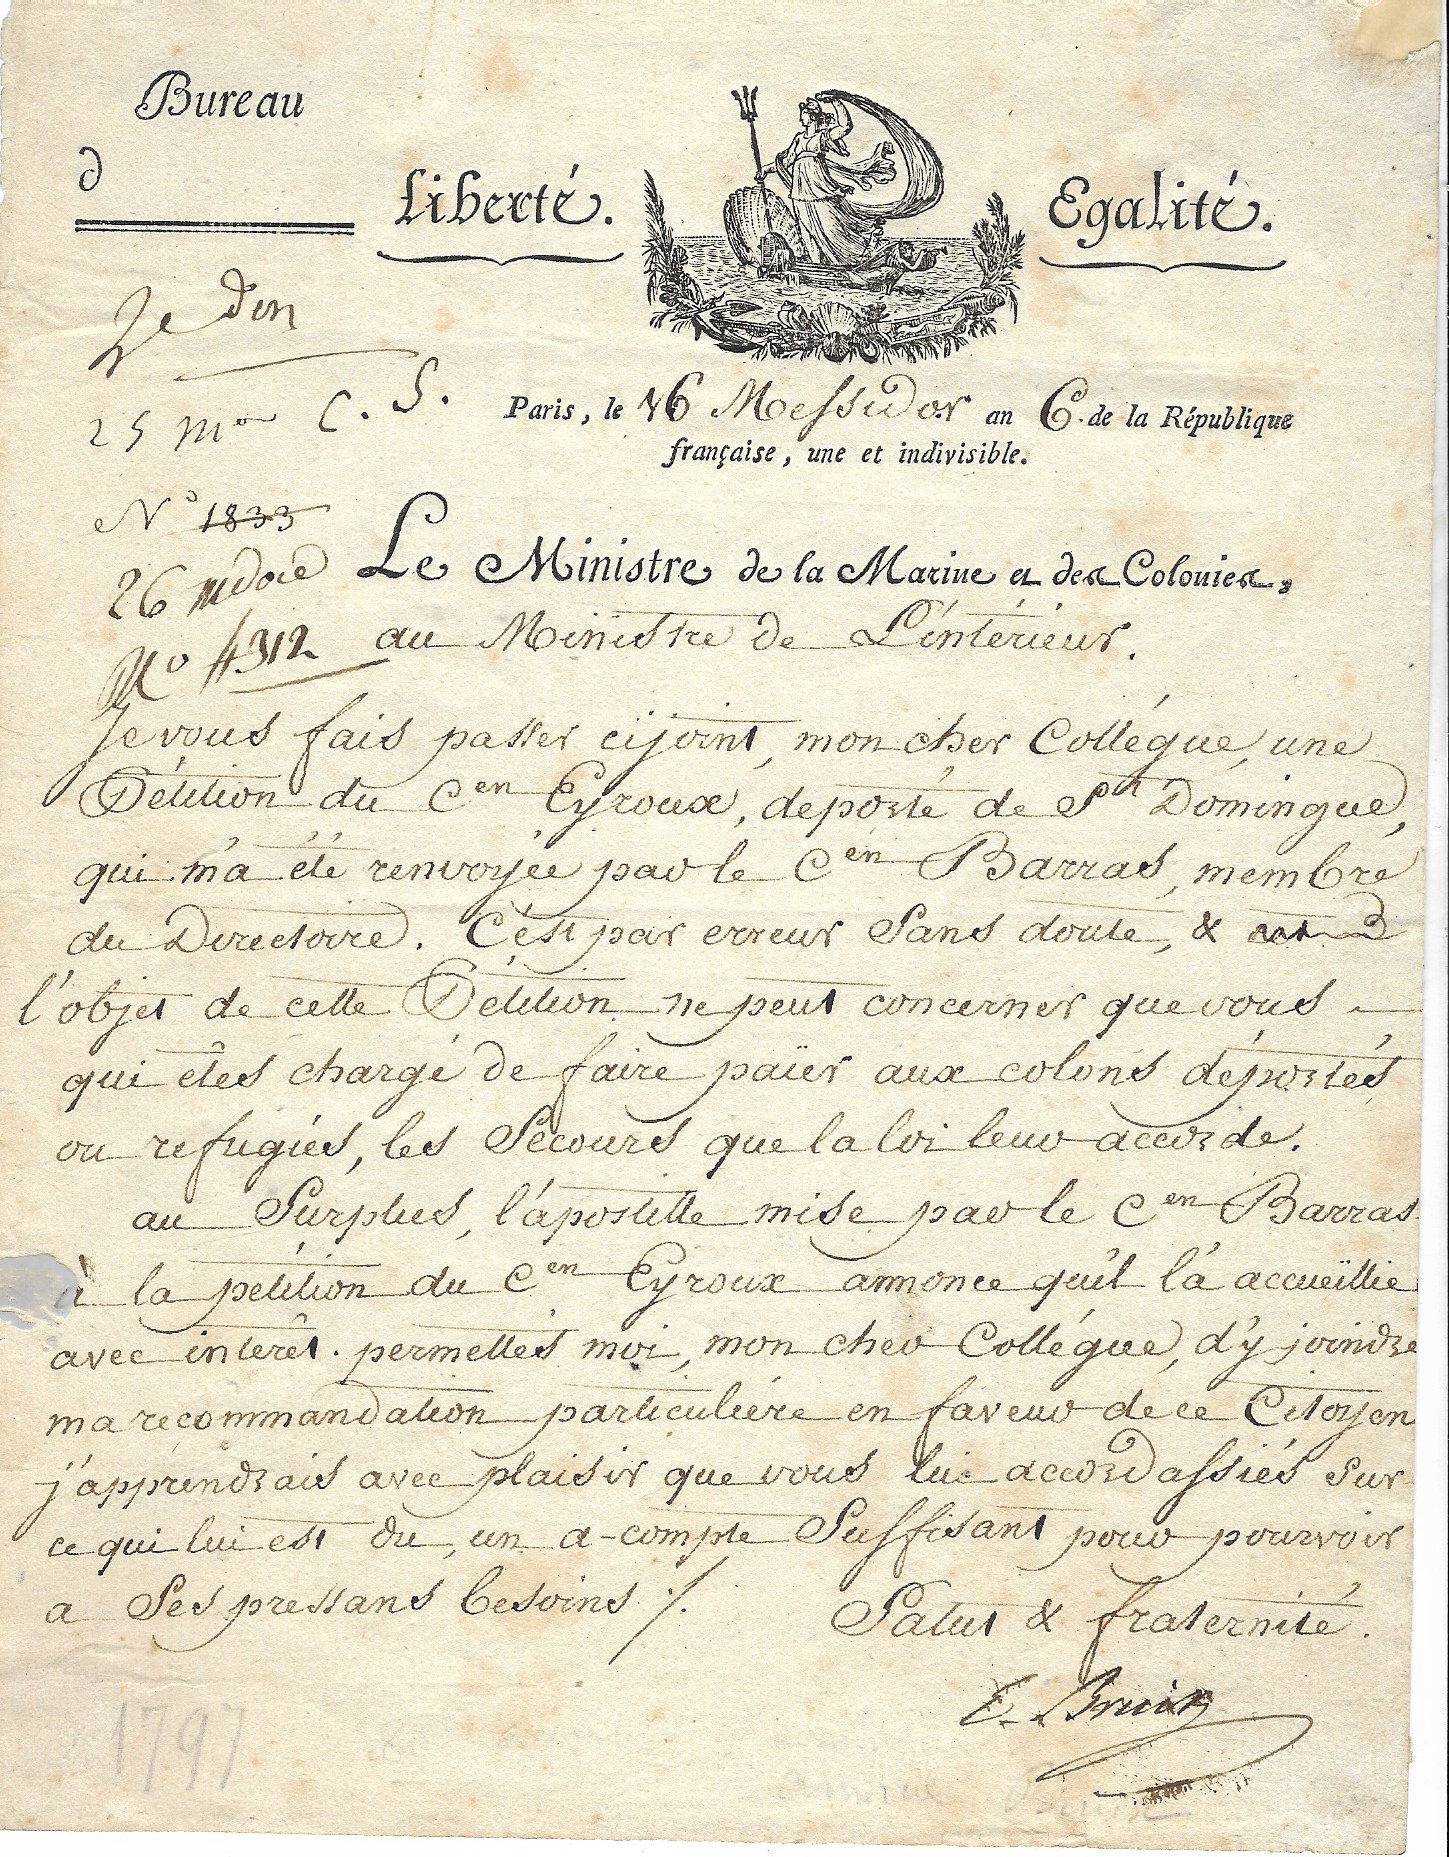 Bureau
d
Liberté.
Egalité.
2e don
25 Mor C. S.
Paris, le 16 Messidor an 6. de la République
française, une et indivisible.
N° 1833
26 mdore
No 4312
Le Ministre de la Marine et des Colonies,
au Ministre de L'intérieur.
Je vous fais passer cijoint, mon cher Collégue, une
Pétition du Cen Eyroux, deporté de St Domingue,
qui m'a été renvoyée par le Cen Barras, membre
du Directoire. C'est par erreur Sans doute, &
l'objet de cette Pétition ne peut concerner que vous
qui êtes chargé de faire païer aux colons déportés
ou refugiés, les Secours que la loi leur accorde.
au Surplus, l'apostille mise par le Cen Barras
à la pétition du Cen Eyroux annonce qu'il l'a accueïllie
avec intérêt. permettés moi, mon cher Collégue, d'y joindre
ma recommandation particuliére en faveur de ce Citoyen
j'apprendrais avec plaisir que vous lui accordassiés Sur
ce qui lui est du, un a-compte Suffisant pour pourvoir
a Ses pressans besoins ./.
Salut & fraternité.
E. Bruix
1797